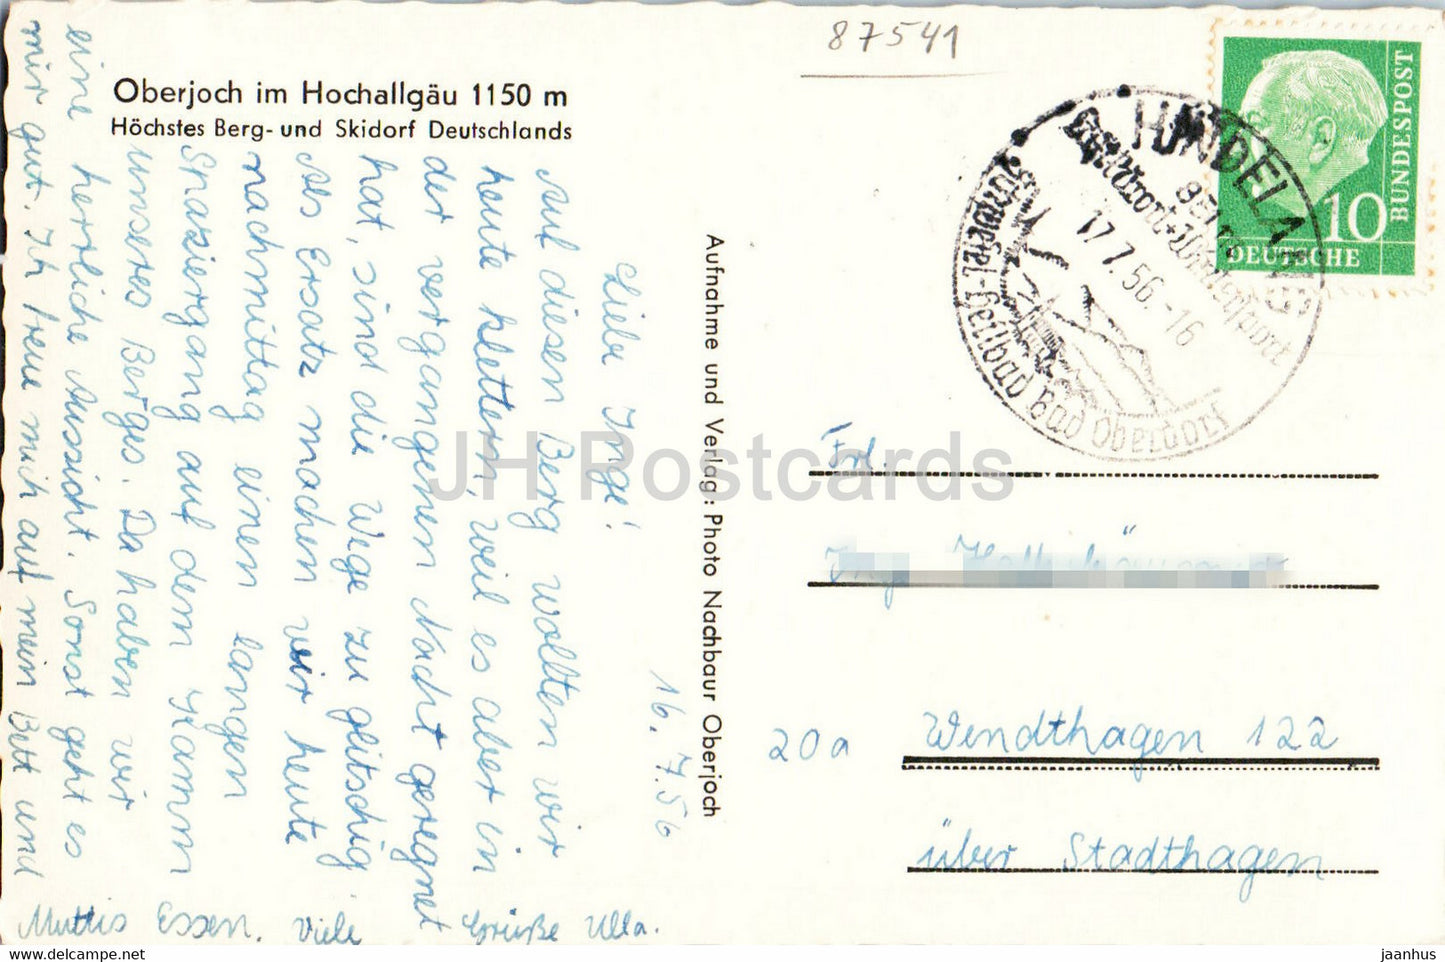 87541
Oberjoch im Hochallgäu 1150 m
Höchstes Berg- und Skidorf Deutschlands
16. 7. 56
Liebe Inge!
Auf diesen Berg wollten wir
heute klettern, weil es aber in
der vergangenen Nacht geregnet
hat, sind die Wege zu glitschig.
Als Ersatz machen wir heute
nachmittag einen langen
Spaziergang auf dem Kamm
unseres Berges. Da haben wir
eine herrliche Aussicht. Sonst geht es
mir gut. Ich freue mich auf mein Bett und
Muttis Essen. Viele Grüße Ulla.
Aufnahme und Verlag: Photo Nachbaur Oberjoch
HINDELANG
17.7.56.-16
Schwefel-Heilbad Bad Oberdorf
10
DEUTSCHE
BUNDESPOST
Frl.
20a Wendthagen 122
über Stadthagen
JH Postcards
hippostcard.com
jaanhus